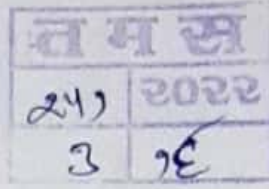 त म स
२५१ २०२२
३ १६